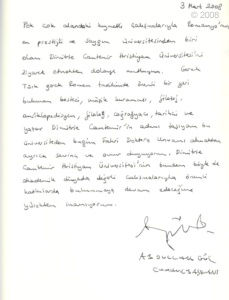 3 Mart 2008
© 2008
Pek çok alandaki kıymetli çalışmalarıyla Romanya'nın
en prestijli ve saygın üniversitesinden biri
olan Dimitrie Cantemir Hristiyan Üniversitesi'ni
ziyaret etmekten dolayı mutluyum. Gerek
Türk gerek Romen tarihinde önemli bir yeri
bulunan besteci, müzik kuramcısı, filozof,
ansiklopedisyen, filolog, coğrafyacı, tarihçi ve
yazar Dimitrie Cantemir'in adını taşıyan bu
üniversiteden bugün Fahri Doktora Unvanı almaktan
ayrıca sevinç ve onur duyuyorum. Dimitrie
Cantemir Hristiyan Üniversitesi'nin bundan böyle de
akademik dünyada değerli çalışmalarıyla önemli
katkılarda bulunmaya devam edeceğine
yürekten inanıyorum.
ABDULLAH GÜL
CUMHURBAŞKANI